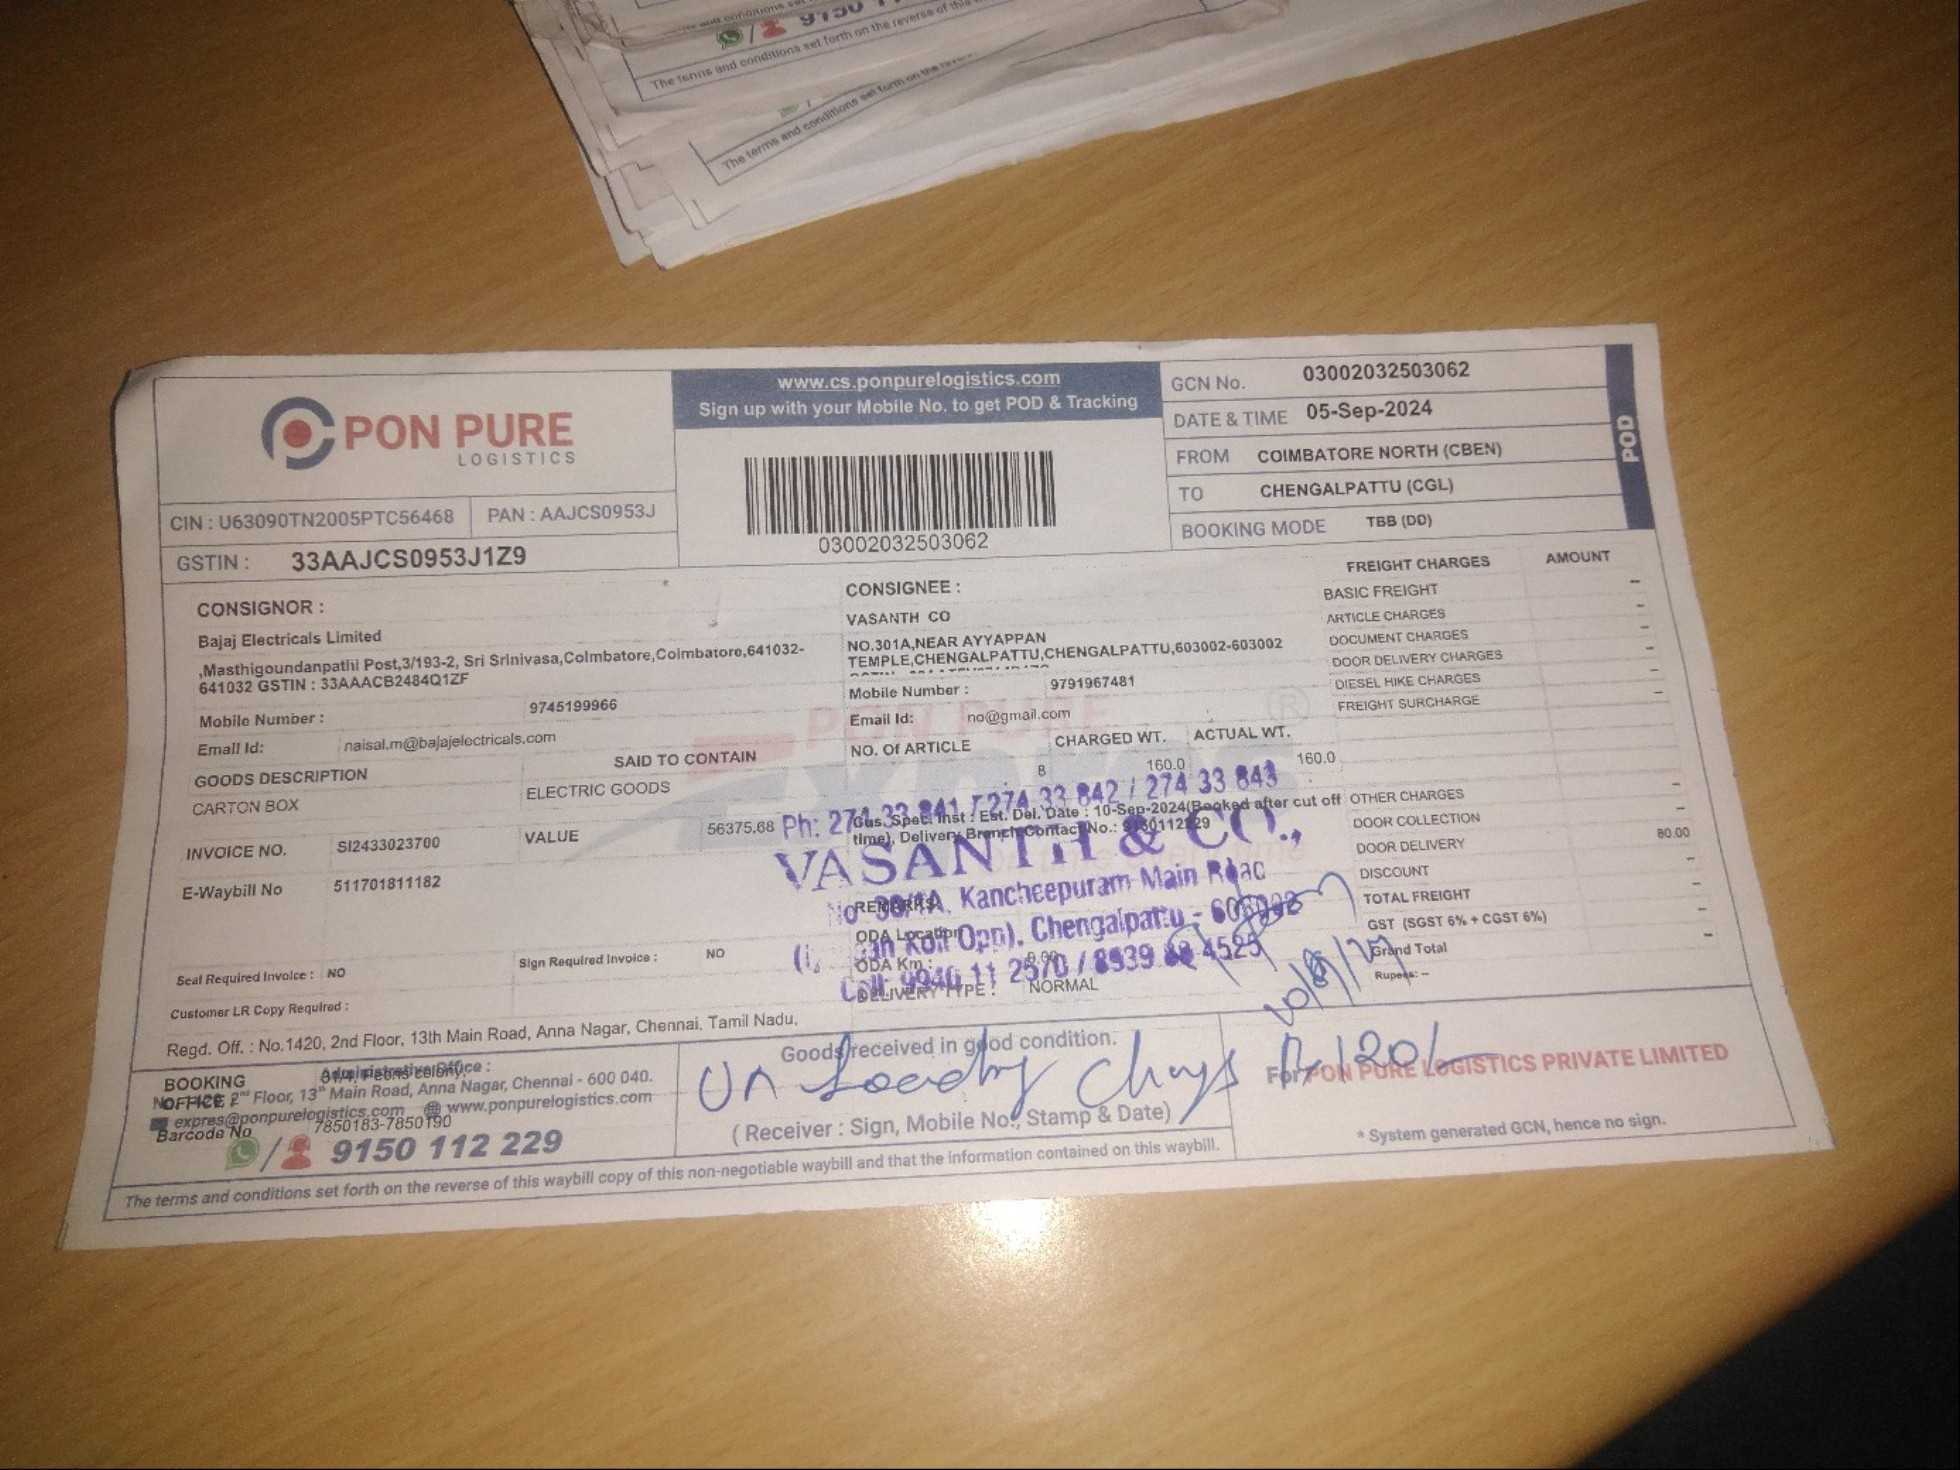 9150 1
The terms and conditions set forth on the reverse of this
The terms and conditions set forth on the
PON PURE
LOGISTICS
CIN : U63090TN2005PTC56468
PAN : AAJCS0953J
GSTIN : 33AAJCS0953J1Z9
www.cs.ponpurelogistics.com
Sign up with your Mobile No. to get POD & Tracking
03002032503062
GCN No. 03002032503062
DATE & TIME 05-Sep-2024
FROM COIMBATORE NORTH (CBEN)
TO CHENGALPATTU (CGL)
BOOKING MODE TBB (DD)
POD
CONSIGNOR :
Bajaj Electricals Limited
,Masthigoundanpathi Post,3/193-2, Sri Srinivasa,Coimbatore,Coimbatore,641032-
641032 GSTIN : 33AAACB2484Q1ZF
Mobile Number : 9745199966
Email Id: naisal.m@bajajelectricals.com
CONSIGNEE :
VASANTH CO
NO.301A,NEAR AYYAPPAN
TEMPLE,CHENGALPATTU,CHENGALPATTU,603002-603002
Mobile Number : 9791967481
Email Id: no@gmail.com
FREIGHT CHARGES AMOUNT
BASIC FREIGHT –
ARTICLE CHARGES –
DOCUMENT CHARGES –
DOOR DELIVERY CHARGES –
DIESEL HIKE CHARGES –
FREIGHT SURCHARGE –
PON PURE
GOODS DESCRIPTION SAID TO CONTAIN NO. Of ARTICLE CHARGED WT. ACTUAL WT.
CARTON BOX ELECTRIC GOODS 8 160.0 160.0
INVOICE NO. SI2433023700 VALUE 56375.68
E-Waybill No 511701811182
Cus. Spec. Inst : Est. Del. Date : 10-Sep-2024(Booked after cut off
time), Delivery Branch Contact No.: 9150112229
Ph: 274 33 841 / 274 33 842 / 274 33 843
VASANTH & CO.,
Kancheepuram Main Road
Koil Opp). Chengalpattu - 603002
Call: 9940 11 2570 / 8939 4525
REMARKS
ODA Location
ODA Km : 0.00
DELIVERY TYPE : NORMAL
OTHER CHARGES –
DOOR COLLECTION –
DOOR DELIVERY 80.00
DISCOUNT –
TOTAL FREIGHT –
GST (SGST 6% + CGST 6%) –
Grand Total –
Rupees: –
Seal Required Invoice : NO Sign Required Invoice : NO
Customer LR Copy Required :
Regd. Off. : No.1420, 2nd Floor, 13th Main Road, Anna Nagar, Chennai, Tamil Nadu.
BOOKING
OFFICE :
Administrative Office :
2nd Floor, 13th Main Road, Anna Nagar, Chennai - 600 040.
expres@ponpurelogistics.com www.ponpurelogistics.com
Barcode No 7850183-7850190
9150 112 229
Goods received in good condition.
Un Loading Chargs Rs 120/-
( Receiver : Sign, Mobile No., Stamp & Date)
For PON PURE LOGISTICS PRIVATE LIMITED
* System generated GCN, hence no sign.
The terms and conditions set forth on the reverse of this waybill copy of this non-negotiable waybill and that the information contained on this waybill.